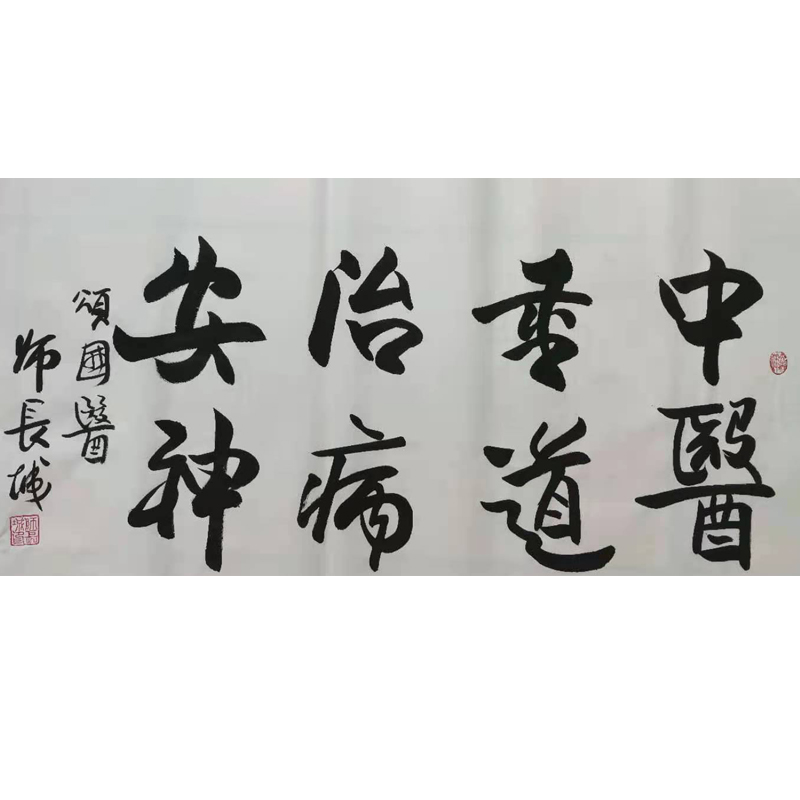 中醫
重道
治病
安神
頌國醫
师長城